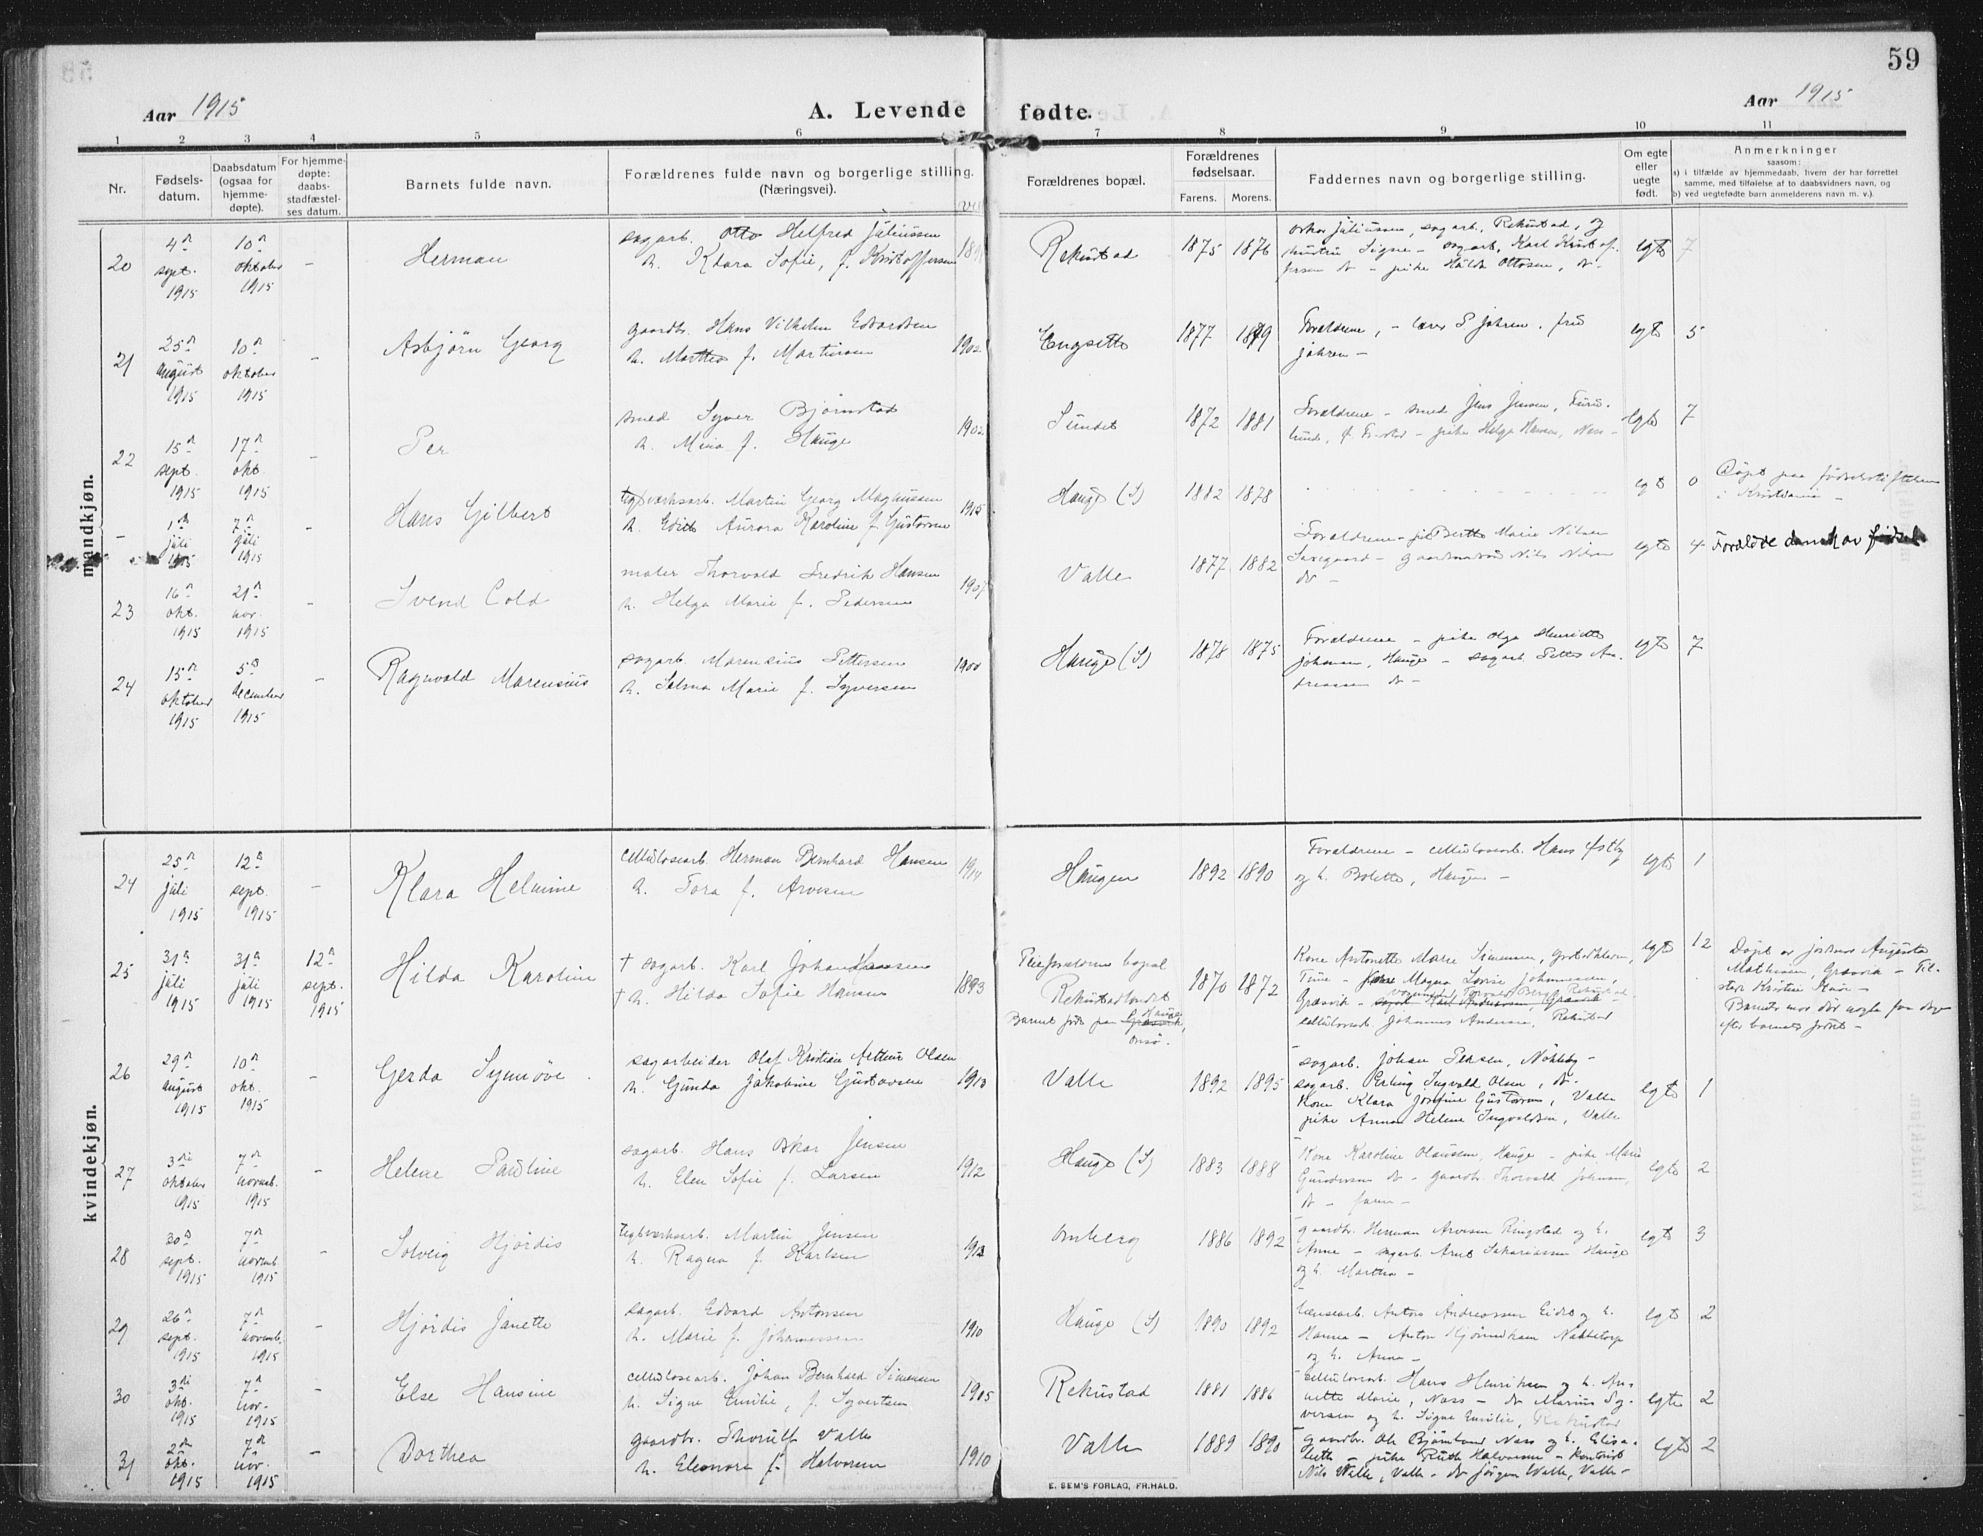 59
Aar 1915
A. Levende fødte.
Aar 1915
1 2 3 4 5 6 7 8 9 10 11
Nr.
Fødsels-
datum.
Daabsdatum
(ogsaa for
hjemme-
døpte).
For hjemme-
døpte:
daabs-
stadfæstel-
ses datum.
Barnets fulde navn.
Forældrenes fulde navn og borgerlige stilling.
(Næringsvei).
Forældrenes bopæl.
Forældrenes
fødselsaar.
Farens. Morens.
Faddernes navn og borgerlige stilling.
Om egte
eller
uegte
født.
Anmerkninger
saasom:
a) i tilfælde av hjemmedaab, hvem der har forrettet
samme, med tilføielse af to daabsvidners navn, og
b) ved uegtefødte barn anmelderens navn m. v.).
mandkjøn.
20
4de sept. 1915
10de oktober 1915
-
Herman
sagarb. Otto Helfred Juliussen
h. Klara Sofie, f. Kristoffersen
Rekustad
1875 1876
oskar Juliussen, sagarb. Rekustad, og
hustru Signe - sagarb. Karl Kristof-
fersen do - pike Hulda Ottosen, do -
egte 7
21
25de august 1915
10de oktober 1915
-
Asbjörn Georg
gaardbr. Hans Vilhelm Edvardsen
h. Marthea f. Martinsen
1902
Engsette
1877 1879
Forældrene, - lærer P. Johren. fru
Johren -
egte 5
22
15de sept. 1915
17de okt. 1915
-
Per
smed Syver Björnstad
h. Mina f. Hauge
1902
Sundet
1872 1881
Forældrene - smed Jens Jensen, Furu-
lund, - pike Helga Hansen, Næs -
egte 7
-
1ste juli 1915
7de juli 1915
-
Hans Gilbert
teglverksarb. Martin Georg Magnussen
h. Edith Aurora Karoline f. Gustavsen
1915
Hauge (S)
1882 1878
egte 0
Döpt paa fødselsstiftelsen
i Kristiania -
23
16de okt. 1915
21de nov. 1915
-
Svend Cold
maler Thorvald Fredrik Hansen
h. Helga Marie f. Pedersen
1907
Valle
1877 1882
Forældrene - pi. Berthe Marie Nilsen
gaardmand Nils Nilsen
do -
egte 4
24
15de oktober 1915
5te december 1915
-
Ragnvald Marensius
sagarb. Marensius Pettersen
h. Selma Marie f. Syversen
1900
Hauge (S)
1878 1875
Forældrene - pike Olga Henriette
Johansen, Hauge - sagarb. Petter An-
dreassen do -
egte 7
kvindekjøn.
24
25de juli 1915
12te sept. 1915
-
Klara Helmine
cellulosearb. Herman Bernhard Hansen
h. Tora f. Arvesen
Haugen
1892 1890
Forældrene - cellulosearb. Hans Østby
og h. Bolette, Haugen -
egte 1
25
31te juli 1915
31te juli 1915
12te sept. 1915
Hilda Karoline
† sagarb. Karl Johan Hansen
† h. Hilda Sofie Hansen
1893
Pleieforældrenes bopæl
Rekustadlandet
Barnet født paa Hauge, Onsø.
1870 1872
Kone Antonette Marie Simensen,
Tine - Magna Lovise Johannessen,
Græsvik -
cellulosearb. Johannes Andersen, Rekustad
egte 12
Døpt av jordmor Augusta
Mathisen, Græsvik - Til-
stede Kristine Moen -
Barnets mor døde nogle faa dage
efter barnets fødsel -
26
29de august 1915
10de okt. 1915
-
Gerda Synnøve
sagarbeider Olaf Kristian Arthur Olsen
h. Gunda Jakobine Gustavsen
1913
Valle
1892 1895
sagarb. Johan Persen, Nökleby -
sagarb. Erling Ingvald Olsen, do -
Kone Klara Josefine Gustavsen, Valle
pike Anna Helene Ingvaldsen, Valle
egte 1
27
3die oktober 1915
7de novemb. 1915
-
Helene Pauline
sagarb. Hans Oskar Jensen
h. Elen Sofie f. Larsen
1912
Hauge (S)
1883 1888
Kone Karoline Olaussen, Hauge - pike Marie
Gundersen do - gaardbr. Thorvald Johnsen,
do - faren -
egte 2
28
30te sept. 1915
7de novemb. 1915
-
Solveig Hjördis
Teglverksarb. Martin Jensen
h. Ragna f. Karlsen
Omberg
1886 1892
gaardbr. Herman Arvesen Ringstad og h.
Anne - sagarb. Arnt Sakariassen Hauge
og h. Marthea -
egte 3
29
26de sept. 1915
7de novemb. 1915
-
Hjördis Janette
sagarb. Edvard Antonsen
h. Marie f. Johannessen
1910
Hauge (S)
1890 1892
lænsearb. Anton Andreassen Eidet og h.
Hanna - Anton Nabbetorp
og h. Anna -
egte 2
30
3die okt. 1915
7de nov. 1915
-
Else Hansine
cellulosearb. Johan Bernhard Simensen
h. Signe Emilie, f. Syvertsen
1905
Rekustad
1881 1886
cellulosearb. Hans Henriksen og h. An-
nette Marie, Næss - do Marius Sy-
versen og h. Signe Emilie, Rekustad
egte 2
31
2den okt. 1915
7de nov. 1915
-
Dorthea
gaardbr. Thorulf Valle
h. Eleonora f. Halvorsen
1910
Valle
1889 1890
gaardbr. Ole Björnland Næss og h. Elisa-
beth - pike Ruth Halvorsen - kontorist
Nils Walle, Valle - do Jørgen Walle, Valle -
egte 2
E. SEM'S FORLAG, FR.HALD.